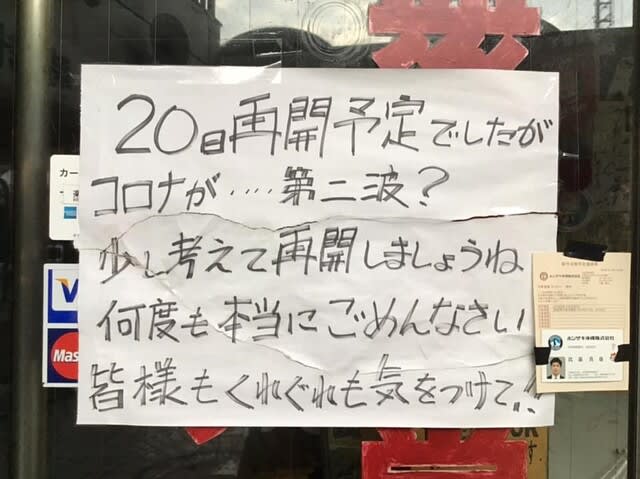 20日再開予定でしたが
コロナが‥‥‥第二波？
少し考えて再開しましょうね
何度も本当にごめんなさい
皆様もくれぐれも気をつけて!!
カー
V
Mas
ホシザキ沖縄株式会社